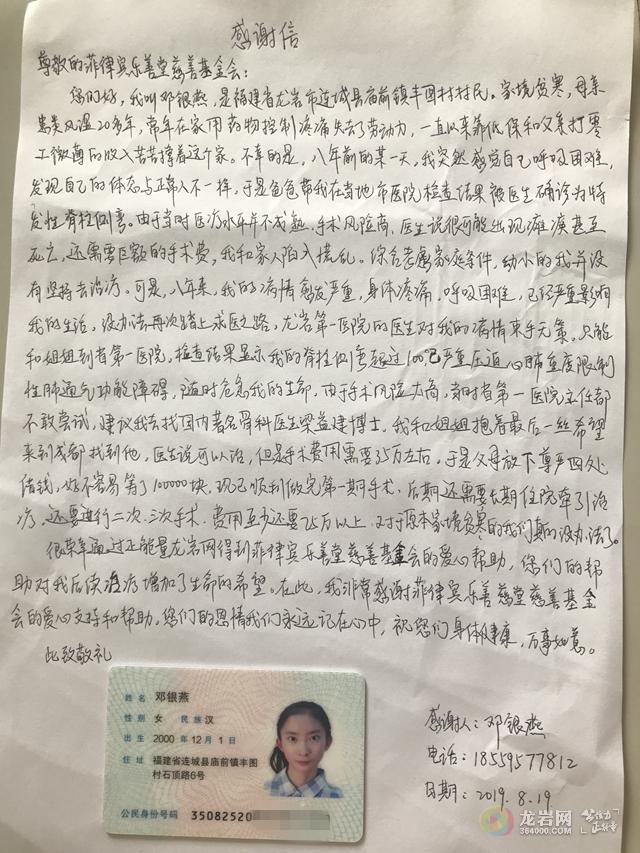 感谢信
尊敬的菲律宾乐善堂慈善基金会：
您们好，我叫邓银燕，是福建省龙岩市连城县庙前镇丰图村村民。家境贫寒，母亲
患类风湿20多年，常年在家用药物控制疼痛失去了劳动力，一直以来靠低保和父亲打零
工微薄的收入苦苦撑着这个家。不幸的是，八年前的某一天，我突然感觉自己呼吸困难，
发现自己的体态与正常人不一样，于是爸爸带我在当地市医院检查结果被医生确诊为特
发性脊柱侧弯。由于当时医疗水平不成熟，手术风险高，医生说很可能出现瘫痪甚至
死亡，还需要巨额的手术费，我和家人陷入慌乱。综合考虑家庭条件，幼小的我并没
有坚持去治疗。可是，八年来，我的病情愈发严重，身体疼痛，呼吸困难，已经严重影响
我的生活，没办法再次踏上求医之路，龙岩第一医院的医生对我的病情束手无策，只能
和姐姐到省第一医院，检查结果显示我的脊柱侧弯超过100°已严重压迫心肺重度限制
性肺通气功能障碍，随时危急我的生命，由于手术风险太高，当时省第一医院主任都
不敢尝试，建议我去找国内著名骨科医生梁益建博士。我和姐姐抱着最后一丝希望
来到成都找到他，医生说可以治，但是手术费用需要35万左右，于是父母放下尊严四处
借钱，好不容易筹了100000块，现已顺利做完第一期手术，后期还需要长期住院牵引治
疗，还要进行二次、三次手术，费用至少还要25万以上，对于原本家境贫寒的我们真的没办法了。
很荣幸通过正能量龙岩网得到菲律宾乐善堂慈善基金会的爱心帮助，您们的帮
助对我后续治疗增加了生命的希望。在此，我非常感谢菲律宾乐善慈堂慈善基金
会的爱心支持和帮助，您们的恩情我们永远记在心中，祝您们身体健康，万事如意。
此致敬礼
姓名 邓银燕
性别 女 民族 汉
出生 2000 年 12 月 1 日
住址 福建省连城县庙前镇丰图
村石顶路6号
公民身份号码 35082520
感谢人：邓银燕
电话：18559577812
日期：2019.8.19
龙岩网
364000.com